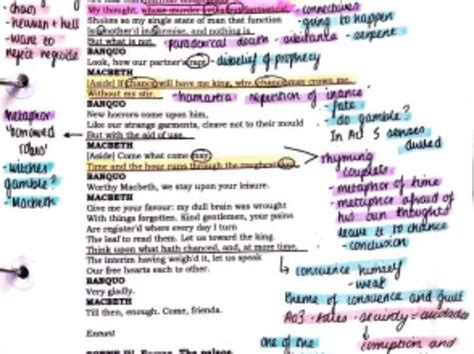 - chaos
- heaven + hell
- want to
reject regicide
My thought, whose murder
- connectives
- going to happen
Shakes so my single state of man that function
Is smother'd in surmise, and nothing is
But what is not.
- paradoxical
- sibilants - serpent
BANQUO
Look, how our partner's rapt.
- disbelief of prophecy
MACBETH
[Aside] If chance will have me king, why, chance may crown me,
Without my stir.
- hamartia
repetition of
- fate
BANQUO
New horrors come upon him,
Like our strange garments, cleave not to their mould
But with the aid of use.
- do gamble?
In Act 5 senses
dulled
metaphor
'borrowed
robes'
- witches
gamble?
- Macbeth
MACBETH
[Aside] Come what come may,
Time and the hour runs through the roughest day.
rhyming
couplets
- metaphor of time
- metaphor afraid of
his own thoughts
leave it to chance
- conclusion
BANQUO
Worthy Macbeth, we stay upon your leisure.
MACBETH
Give me your favour: my dull brain was wrought
With things forgotten. Kind gentlemen, your pains
Are register'd where every day I turn
The leaf to read them. Let us toward the king.
Think upon what hath chanced, and, at more time,
The interim having weigh'd it, let us speak
Our free hearts each to other.
himself
- weak
theme of conscience and guilt
BANQUO
Very gladly.
MACBETH
Till then, enough. Come, friends.
Exeunt
one of the
corruption and
SCENE IV. Forres. The palace.